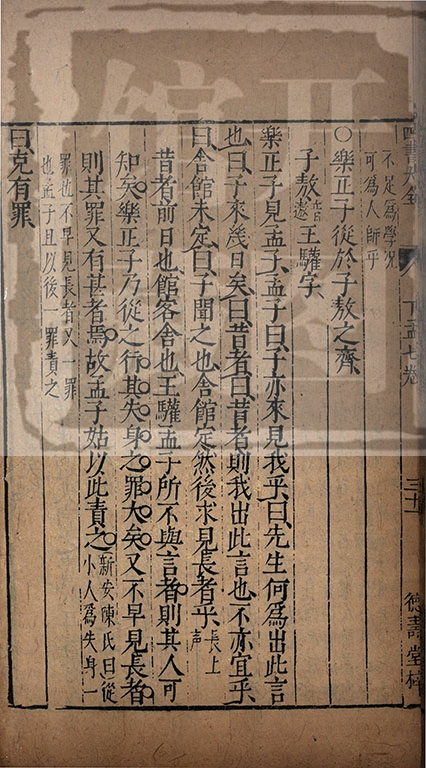 四書大全
下孟七卷
三十一
德壽堂梓
不足爲學況
可爲人師乎
○樂正子從於子敖之齊
子敖音遨王驩字
樂正子見孟子孟子曰子亦來見我乎曰先生何爲出此言
也曰子來幾日矣曰昔者曰昔者則我出此言也不亦宜乎
曰舍館未定曰子聞之也舍館定然後求見長者乎長上聲
昔者前日也館客舍也王驩孟子所不與言者則其人可
知矣樂正子乃從之行其失身之罪大矣又不早見長者
則其罪又有甚者焉故孟子姑以此責之新安陳氏曰從小人爲失身一
罪也不早見長者又一罪
也孟子且以後一罪責之
曰克有罪